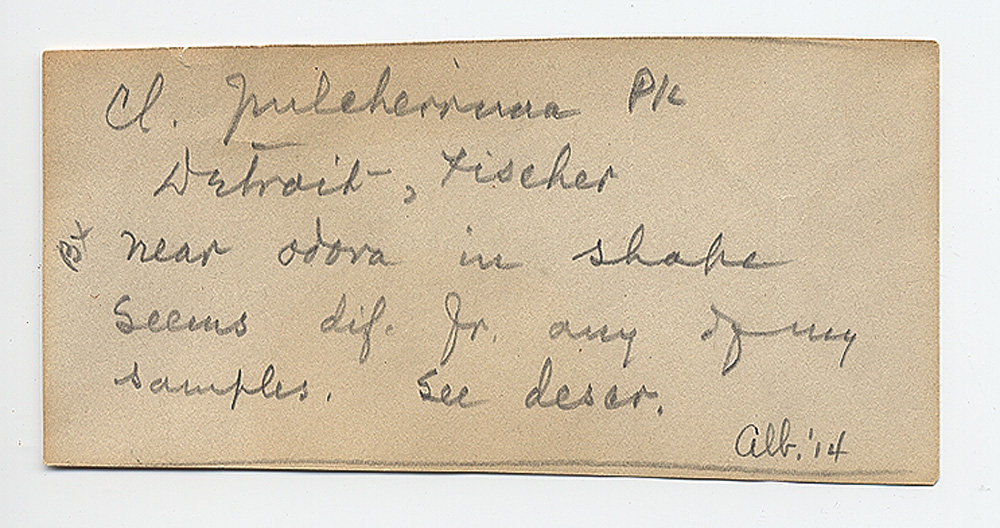 Cl. pulcherrima Pk
Detroit, Fischer
near odora in shape
Seems dif. fr. any of my
samples. See descr.
Alb. '14